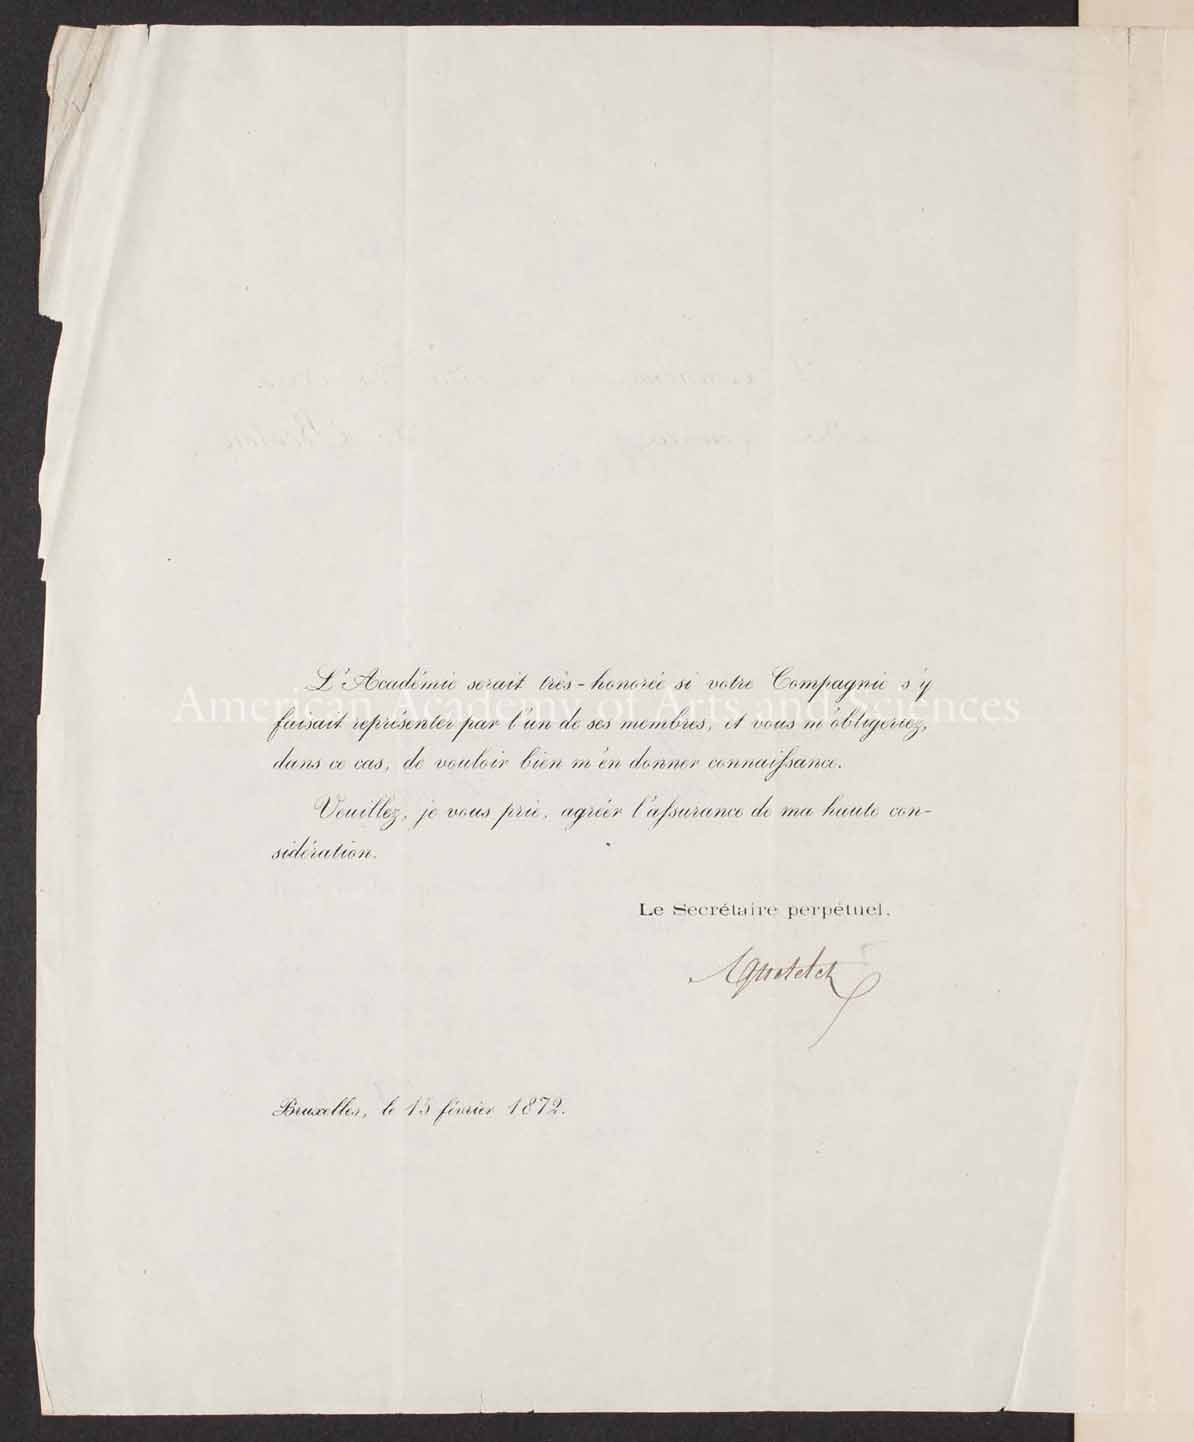 L'Académie serait très-honorée si votre Compagnie s'y
American Academy of Arts and Sciences
faisait représenter par l'un de ses membres, et vous m'obligeriez,
dans ce cas, de vouloir bien m'en donner connaissance.
Veuillez, je vous prie, agréer l'assurance de ma haute con-
sidération.
Le Secrétaire perpétuel.
A Quetelet
Bruxelles, le 15 février 1872.